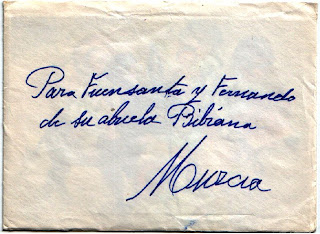 Para Fuensanta y Fernando
de su abuela Bibiana
Murcia